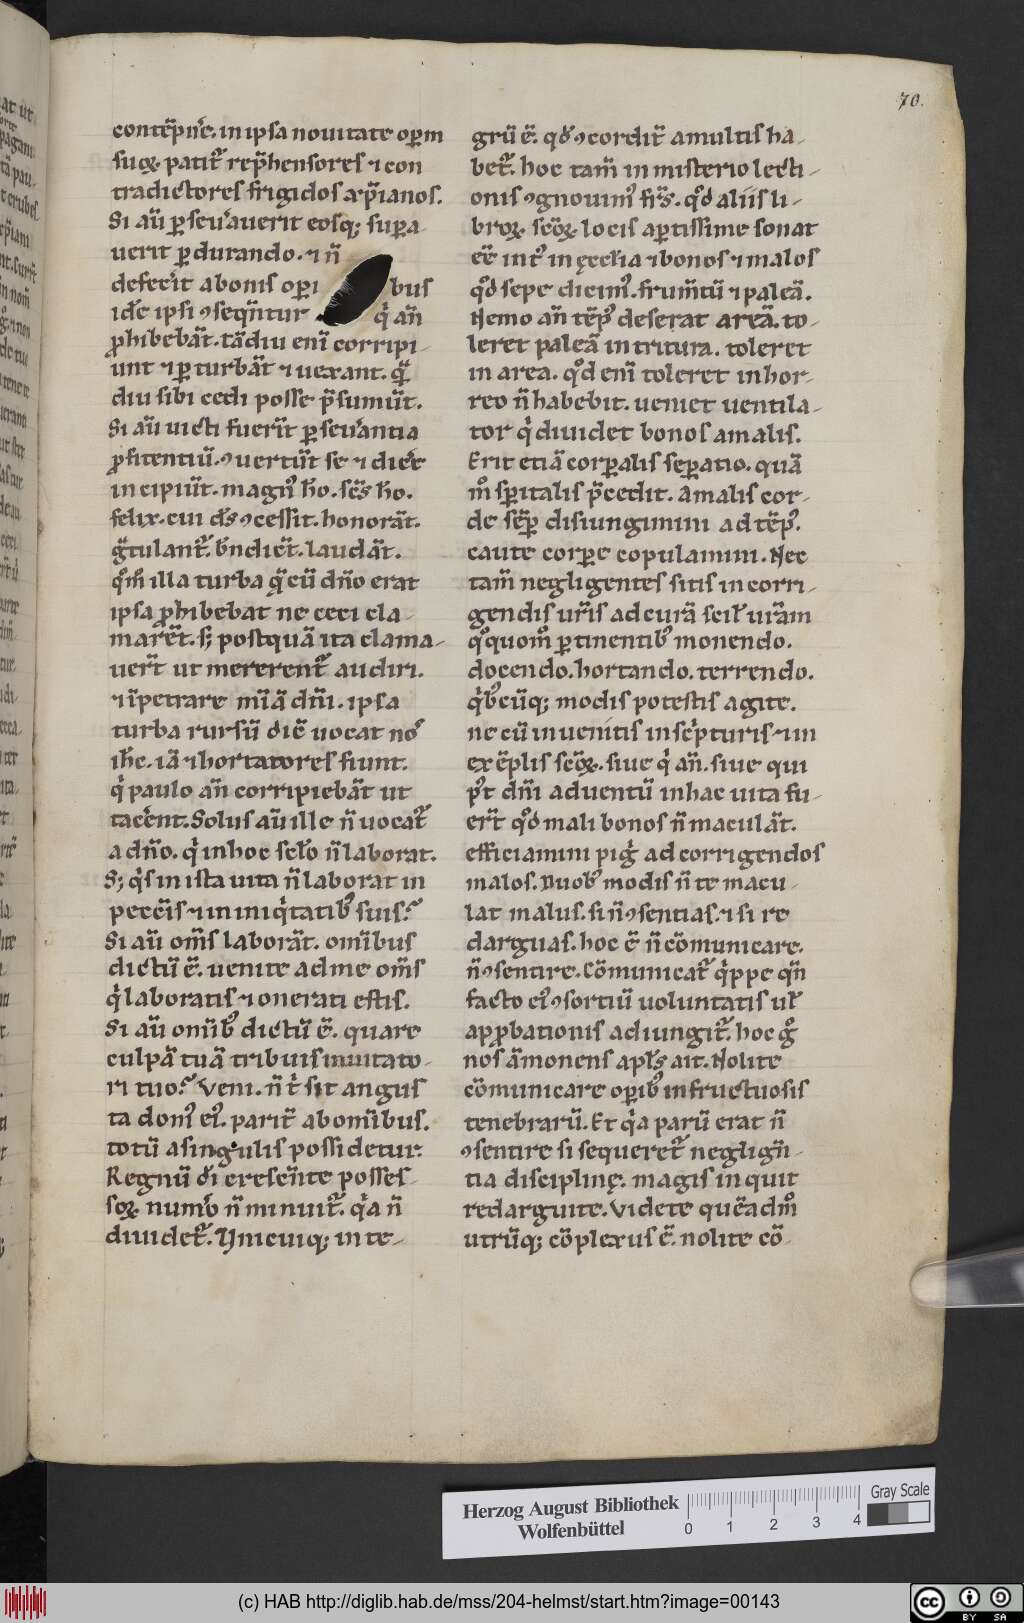 70.
contēpn̄e. in ipsa nouitate op̄ꝝ
suoꝝ. patit᷑ rep̄hensores ⁊ con
tradictores frigidos xp̄ianos.
Si aū ꝑseu̓auerit eosq; suꝑa
uerit ꝑdurando. ⁊ n̄
defec̄it a bonis oꝑi bus
idē ipsi ꝯseqūntur q̇ an̄
ꝓhibebāt. tādiu enī corripi
unt ⁊ ꝑturbāt ⁊ uexant. qᷓ
diu sibi cedi posse p̄sumūt.
Si aū uicti fuerīt ꝑseu̓antia
ꝓfitentiū. ꝯuertūt se ⁊ dic̄e
incipiūt. magn᷒ hō. sc̄s hō.
felix. cui d̄s ꝯcessit. honorāt.
gᷓtulant᷑. bn̄dicūt. laudāt.
qͦm̄ illa turba q̄ cū dn̄o erat
ipsa ꝓhibebat ne ceci cla
marēt. s; postquā ita clama-
uer̄t ut mererent᷑ audiri.
⁊ īpetrare mīā dn̄i. ipsa
turba rursū dic̄ uocat uos
ih̄c. iā ⁊ hortatores fiunt.
q̇ paulo an̄ corripiebāt ut
tac̄ent. Solus aū ille n̄ uocat᷑
a dn̄o. q̇ in hoc sc̄lo n̄ laborat.
S; q̇s in ista uita n̄ laborat in
pecc̄is ⁊ in iniq̇tatib᷒ suis?
Si aū om̄s laborāt. om̄ibus
dictū ē. uenite ad me om̄s
q̇ laboratis ⁊ onerati estis.
Si aū om̄ib᷒ dictū ē. quare
culpā tuā tribuis inuitato-
ri tuo? Veni. n̄ t̄ sit angus
ta dom᷒ ei᷒. parit̄ ab om̄ibus.
totū a singulis possidetur.
Regnū dī crescente posses-
soꝝ. num̄o n̄ minuit᷑. q̇a n̄
diuidet᷑. Vnicuiq; inte-
grū ē. qd̄ ꝯcordit̄ a multis ha-
bet᷑. hoc tam̄ in misterio lecti-
onis ꝯgnouim᷒ fr̄s. qd̄ aliis li-
broꝝ sc̄oꝝ. locis aꝑtissime sonat
eē int᷒ in ęccl̄ia ⁊ bonos ⁊ malos
qd̄ sepe dicim᷒. frum̄tū ⁊ paleā.
Nemo an̄ tēp᷒ deserat areā. to-
leret paleā in tritura. toleret
in area. qd̄ enī toleret in hor-
reo n̄ habebit. ueniet uentila-
tor q̇ diuidet bonos a malis.
Erit etiā corꝑalis seꝑatio. quā
m̊ sp̄italis p̄cedit. A malis cor-
de sēꝑ disiungimini ad tēp᷒.
caute corꝑe copulamini. Nec
tam̄ negligentes sitis in corri-
gendis ur̄is ad curā scil̄ ur̄am
qͦquom̊ ꝑtinentib᷒ monendo.
docendo. hortando. terrendo.
q̇b᷒cūq; modis potestis agite.
ne cū inuenitis in sc̓pturis ⁊ in
exēplis sc̄oꝝ. siue q̇ an̄. siue qui
p᷒t dn̄i aduentū in hac uita fu-
er̄t qd̄ mali bonos n̄ maculāt.
efficiamini pig̓ ad corrigendos
malos. Duob᷒ modis n̄ te macu-
lat malus. si n̄ ꝯsentias. ⁊ si re
darguas. hoc ē n̄ cōmunicare.
n̄ ꝯsentire. Cōmunicat᷑ q̇ppe qn̄
facto ei᷒ ꝯsortiū uoluntatis ul̄
apꝓbationis adiungit᷑. hoc g̊
nos āmonens apl̄s ait. Nolite
cōmunicare oꝑib᷒ infructuosis
tenebrarū. Et q̇a parū erat n̄
ꝯsentire si sequeret᷑ negligen-
tia disciplinę. magis inquit
redarguite. Videte quēadm̊
utrūq; cōplexus ē. nolite cō-
Herzog August Bibliothek
Wolfenbüttel
0 1 2 3 4
Gray Scale
(c) HAB http://diglib.hab.de/mss/204-helmst/start.htm?image=00143
cc BY SA